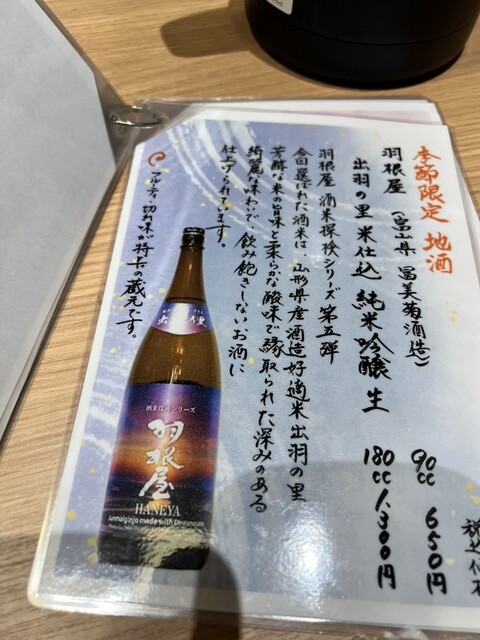 季節限定 地酒
羽根屋 (富山県 富美菊酒造)
出羽の里 米仕込 純米吟醸 生
90cc 650円
180cc 1,300円
羽根屋 酒米探検シリーズ 第五弾
今回選ばれた酒米は 山形県産酒造好適米 出羽の里
芳醇な米の旨味と柔らかな酸味で縁取られた深みのある
綺麗な味わいで 飲み飽きしないお酒に
仕上げられてます。
フルティ、切れ味が特長の蔵元です。
出 里
酒米探検シリーズ
羽根屋
HANEYA